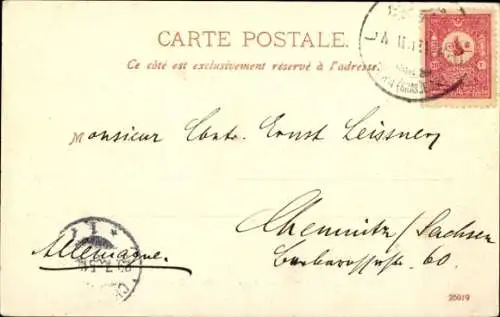 CARTE POSTALE.
Ce côté est exclusivement réservé à l'adresse
Monsieur Ernst Leissner
Chemnitz / Sachsen
60.
Allemagne.
26019